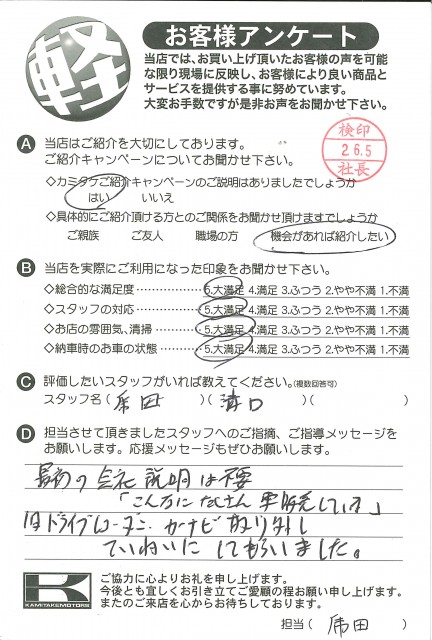 軽
お客様アンケート
当店では、お買い上げ頂いたお客様の声を可能
な限り現場に反映し、お客様により良い商品と
サービスを提供する事に努めています。
大変お手数ですが是非お声をお聞かせ下さい。
検印
26.5
社長
A 当店はご紹介を大切にしております。
ご紹介キャンペーンについてお聞かせ下さい。
◇カミタケご紹介キャンペーンのご説明はありましたでしょうか
はい いいえ
◇具体的にご紹介頂ける方とのご関係をお聞かせ頂けますでしょうか
ご親族 ご友人 職場の方 機会があれば紹介したい
B 当店を実際にご利用になった印象をお聞かせ下さい。
◇総合的な満足度 5.大満足 4.満足 3.ふつう 2.やや不満 1.不満
◇スタッフの対応 5.大満足 4.満足 3.ふつう 2.やや不満 1.不満
◇お店の雰囲気、清掃 5.大満足 4.満足 3.ふつう 2.やや不満 1.不満
◇納車時のお車の状態 5.大満足 4.満足 3.ふつう 2.やや不満 1.不満
C 評価したいスタッフがいれば教えてください。(複数回答可)
スタッフ名 ( 席田 )( 溝口 )( )
D 担当させて頂きましたスタッフへのご指摘、ご指導メッセージを
お願いします。応援メッセージもぜひお願いします。
最初の会社説明は不要
「こんなにたくさん車販売しています」
旧ドライブレコーダー、カーナビ 取り外し
ていねいにしてもらいました。
K
KAMITAKEMOTORS
ご協力に心よりお礼を申し上げます。
今後とも宜しくお引き立てご愛顧の程お願い申し上げます。
またのご来店を心からお待ちしております。
担当 ( 席田 )